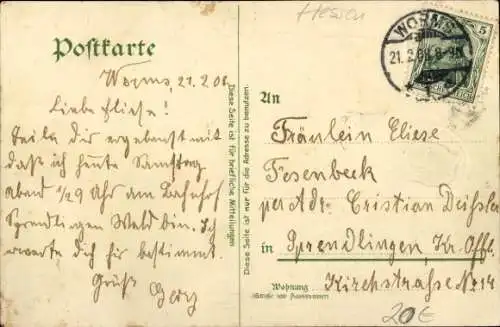 Hessen
Postkarte
WORMS
21.2.08. 8-9N.
5
Worms, 21.2.08.
Liebe Eliese!
Teile dir ergebenst mit
daß ich heute Samstag
abend 1/2 9 Uhr am Bahnhof
Sprendlingen Wald bin. Ich
erwarte dich hir bestimmt.
Gruß
Georg
Diese Seite ist für briefliche Mitteilungen
Diese Seite ist nur für die Adresse zu benutzen
An
Fräulein Eliese
Fesenbeck
per Adr. Cristian Deißler
in Sprendlingen Kr. Offb.
Wohnung Kirchstraße No 14
(Straße und Hausnummer)
20€